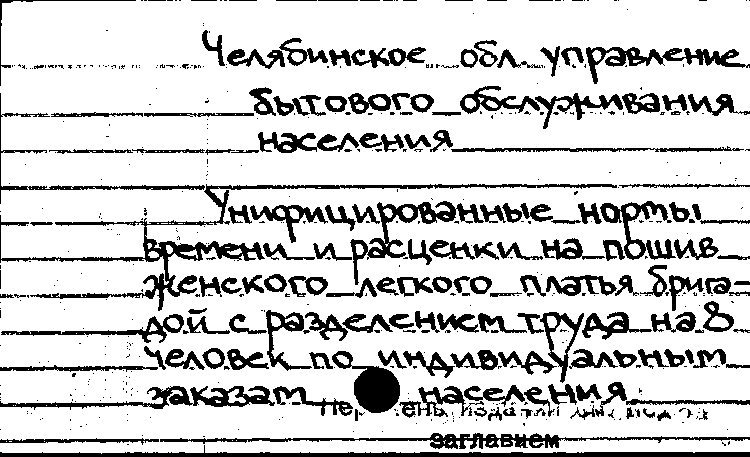 Челябинское обл. управление
бытового обслуживания
населения
Унифицированные нормы
времени и расценки на пошив
женского легкого платья брига-
дой с разделением труда на 8
человек по индивидуальным
заказам населения.
под
заглавием